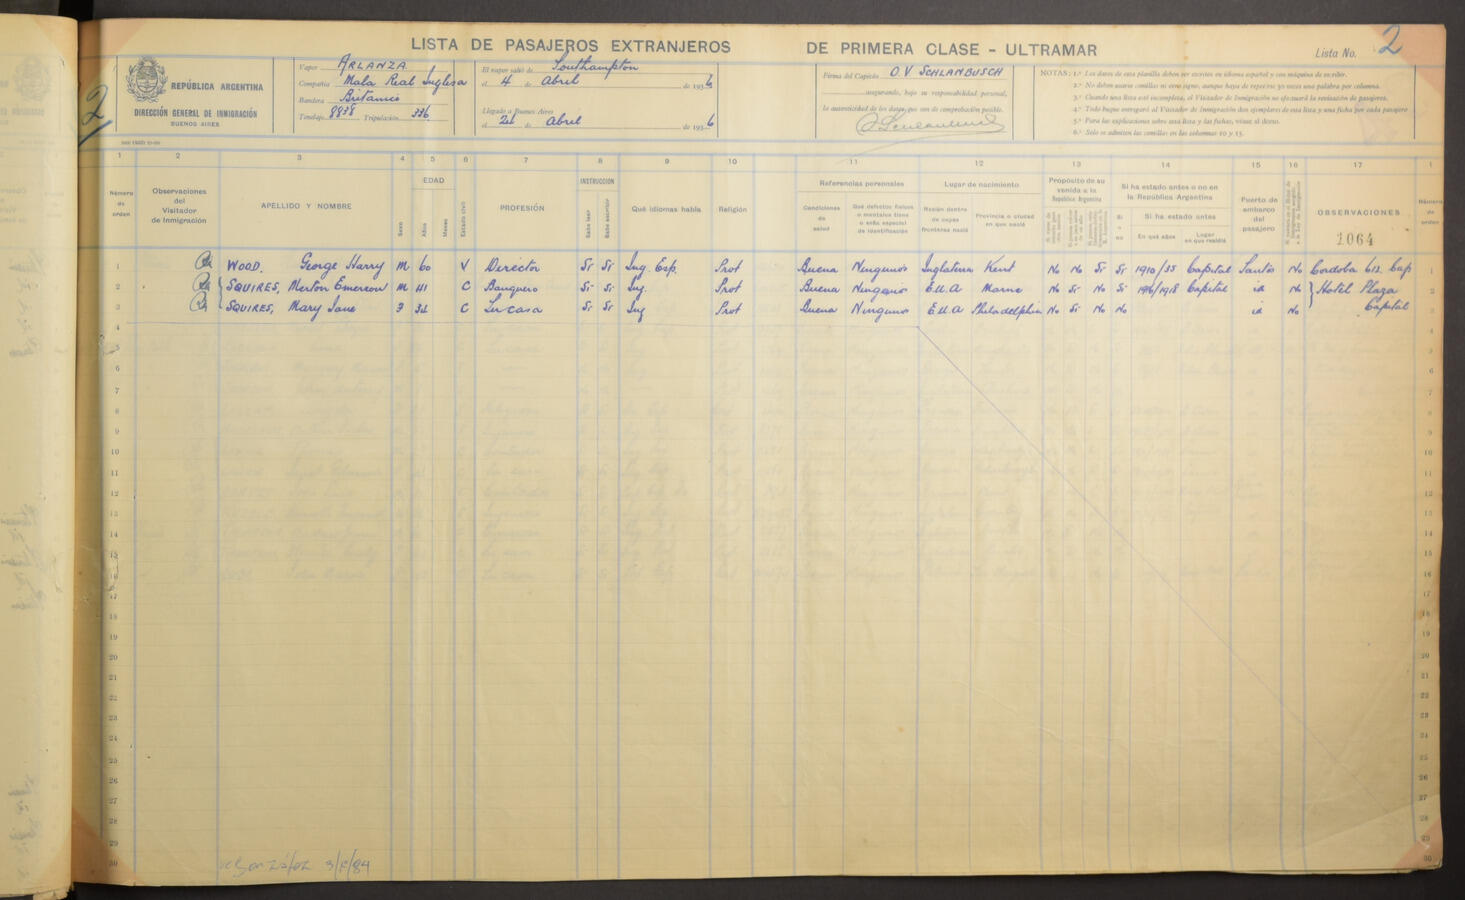 LISTA DE PASAJEROS EXTRANJEROS DE PRIMERA CLASE - ULTRAMAR
Lista No. 2
2
REPÚBLICA ARGENTINA
DIRECCIÓN GENERAL DE INMIGRACIÓN
BUENOS AIRES
Vapor ARLANZA
Compañía Mala Real Inglesa
Bandera Britanica
Tonelaje 8838 Tripulación 336
El vapor salió de Southampton
el 4 de Abril de 1936
Llegado a Buenos Aires
el de Abril de 1936
Firma del Capitán O V SCHLANBUSCH
asegurando, bajo su responsabilidad personal,
la autenticidad de los datos, que son de comprobación posible.
NOTAS: 1.ª Los datos de esta planilla deben ser escritos en idioma español y con máquina de escribir.
2.ª No deben usarse comillas ni otro signo, aunque haya de repetirse 30 veces una palabra por columna.
3.ª Cuando una lista esté incompleta, el Visitador de Inmigración no efectuará la revisación de pasajeros.
4.ª Todo buque entregará al Visitador de Inmigración dos ejemplares de esta lista y una ficha por cada pasajero
5.ª Para las explicaciones sobre esta lista y las fichas, véase al dorso.
6.ª Sólo se admiten las comillas en las columnas 10 y 15.
1 2 3 4 5 6 7 8 9 10 11 12 13 14 15 16 17 1
Número de orden
Observaciones del Visitador de Inmigración
APELLIDO Y NOMBRE
Sexo
EDAD
Años
Meses
Estado civil
PROFESIÓN
INSTRUCCION
Sabe leer
Sabe escribir
Qué idiomas habla
Religión
Referencias personales
Condiciones de salud
Qué defectos físicos o mentales tiene o seña especial de identificación
Lugar de nacimiento
Nación dentro de cuyas fronteras nació
Provincia o ciudad en que nació
Propósito de su venida a la República Argentina
Si ha estado antes o no en la República Argentina
Si o no
Si ha estado antes
En qué años
Lugar en que residió
Puerto de embarco del pasajero
OBSERVACIONES
1064
Número de orden
1 WOOD. George Harry M 60 V Director Si Si Ing. Esp. Prot Buena Ninguno Inglaterra Kent No No Si Si 1910/35 Capital Santos No Cordoba 612 Cap 1
2 SQUIRES, Merton Emerson M 41 C Banquero Si Si Ing. Prot Buena Ninguno E.U.A No Si No Si 1916/1918 Capital id No Hotel Plaza 2
3 SQUIRES, Mary Jane F 34 C Su casa Si Si Ing Prot Buena Ninguno E.U.A Philadelphia No Si No No id No Capital 3
4 4
5 5
6 6
7 7
8 8
9 9
10 10
11 11
12 12
13 13
14 14
15 15
16 16
17 17
18 18
19 19
20 20
21 21
22 22
23 23
24 24
25 25
26 26
27 27
28 28
29 29
30 30